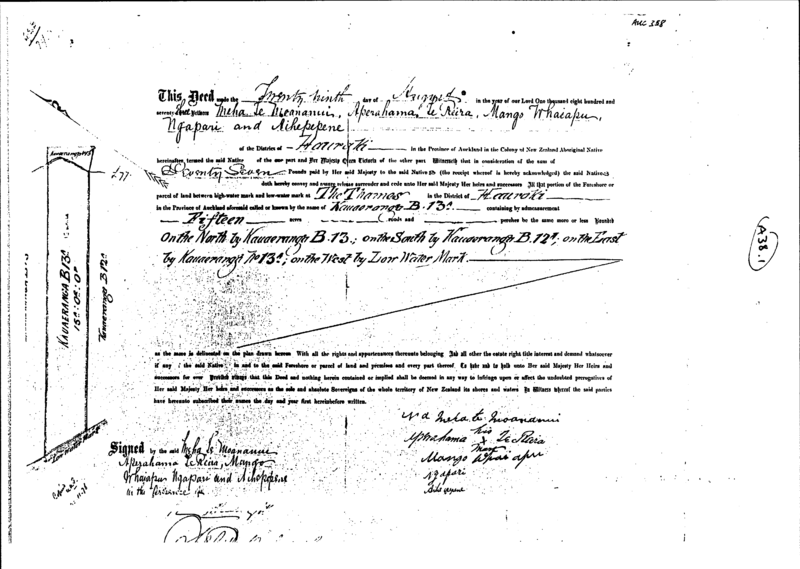 AUC 388
A38.1
This Deed made the Twenty ninth day of August in the year of our Lord One thousand eight hundred and
seventy Between Meha Te Moananui, Aperahama Te Reira, Mango Whaiapu,
Ngapari and Aihepepene
of the District of Hauraki in the Province of Auckland in the Colony of New Zealand Aboriginal Native
hereinafter termed the said Native of the one part and Her Majesty Queen Victoria of the other part Witnesseth that in consideration of the sum of
£77 Seventy Seven Pounds paid by Her said Majesty to the said Natives (the receipt whereof is hereby acknowledged) the said Natives
doth hereby convey and assure release surrender and cede unto Her said Majesty Her heirs and successors All that portion of the Foreshore or
parcel of land between high-water mark and low-water mark at The Thames in the District of Hauraki
in the Province of Auckland aforesaid called or known by the name of Kauaeranga B.13ª containing by admeasurement
Fifteen acres roods and perches be the same more or less Bounded
On the North by Kauaeranga B.13.; on the South by Kauaeranga B.12ª; on the East
by Kauaeranga No 13ª; on the West by Low Water Mark.
as the same is delineated on the plan drawn hereon With all the rights and appurtenances thereunto belonging And all other the estate right title interest and demand whatsoever
if any of the said Native in and to the said Foreshore or parcel of land and premises and every part thereof To have and to hold unto Her said Majesty Her Heirs and
successors for ever Provided always that this Deed and nothing herein contained or implied shall be deemed in any way to infringe upon or affect the undoubted prerogatives of
Her said Majesty Her heirs and successors as the sole and absolute Sovereign of the whole territory of New Zealand its shores and waters In Witness whereof the said parties
have hereunto subscribed their names the day and year first hereinbefore written.
KAUAERANGA B 13ª
15ª: 0ª: 0ᵖ
Kauaeranga B 12ª
Na Meha te Moananui
Aperahama his x mark Te Reira
Mango Whaiapu
Ngapari
Signed by the said Meha Te Moananui
Aperahama Te Reira, Mango
Whaiapu Ngapari and Aihepepene
in the presence of